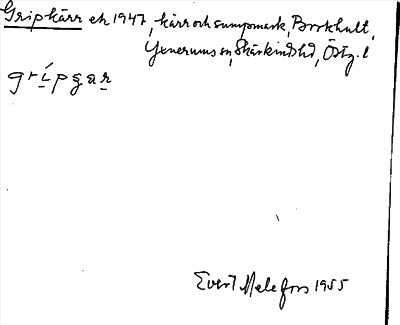 Gripkärr ek 1947, kärr och sumpmark, Borkhult,
Yxnerums sn, Skärkinds hd, Östg. l
grípgar
Evert Melefors 1955